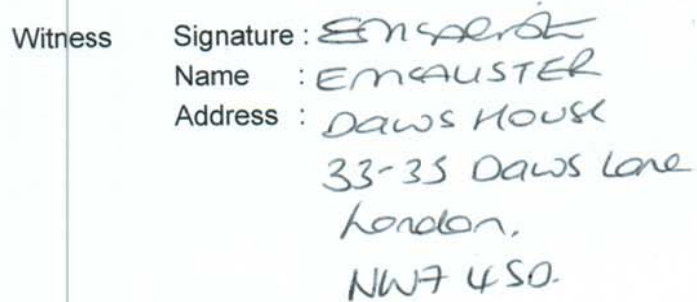 Witness Signature :
Name : EMCALISTER
Address : Daws House
33-35 Daws Lane
London,
NW7 4SD.